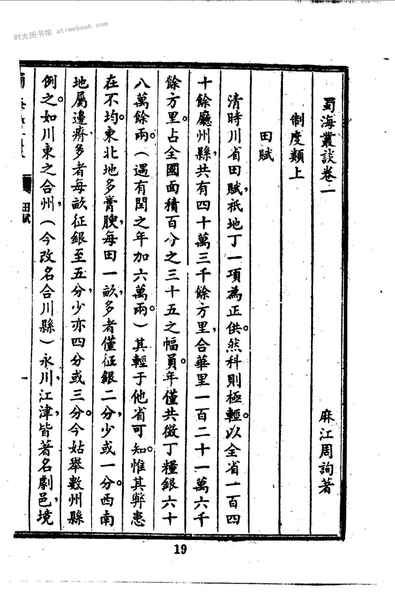 时光图书馆 atimebook.com
蜀海叢談卷一
麻江周詢著
制度類上
田賦
清時川省田賦,祇地丁一項為正供。然科則極輕。以全省一百四
十餘廳州縣,共有四十萬三千餘方里,合華里一百二十一萬六千
餘方里。占全國面積百分之三十五之幅員。年僅共徵丁糧銀六十
八萬餘兩。(遇有閏之年加六萬兩。)其輕于他省可知。惟其弊患
在不均。東北地多膏腴,每田一畝,多者僅征銀二分,少或一分。西南
地屬邊瘠,多者每畝征銀至五分,少亦四分或三分。今姑舉數州縣
例之。如川東之合州,(今改名合川縣)永川,江津,皆著名劇邑,境
田賦
一
19